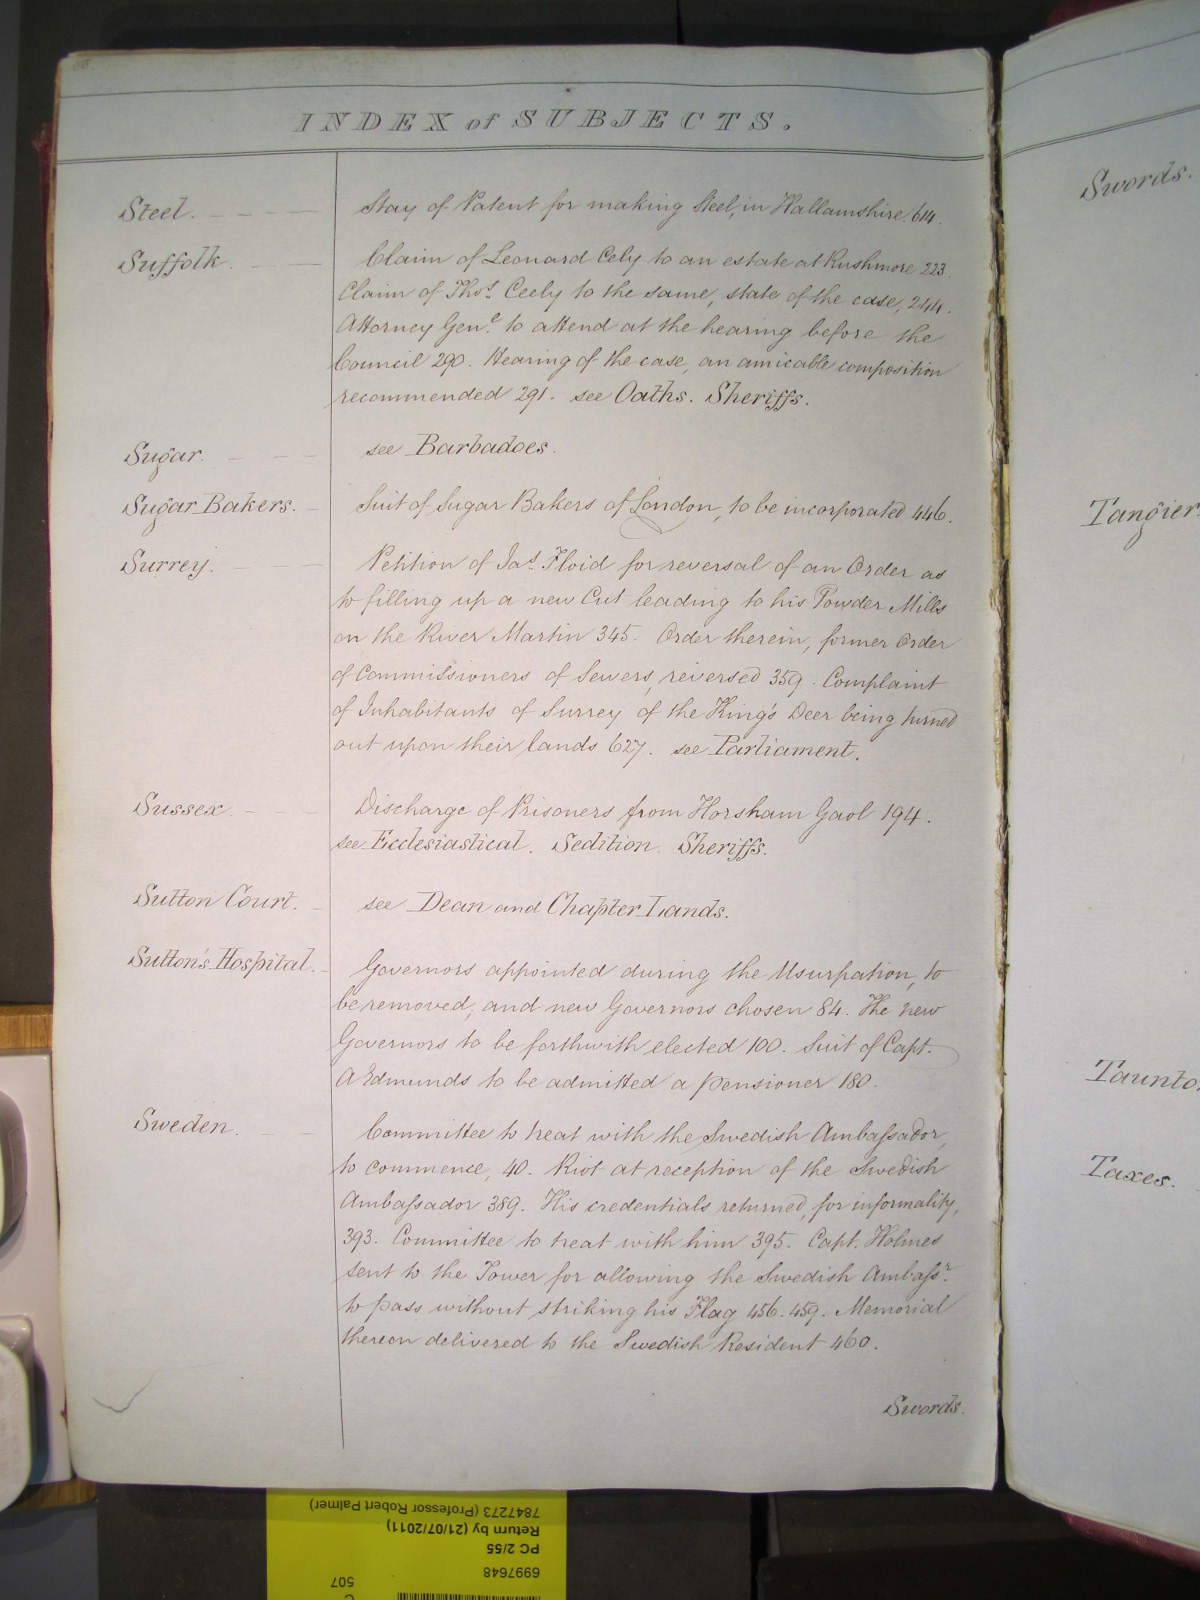 INDEX of SUBJECTS.
Steel. Stay of Patent for making Steel, in Hallamshire. 614.
Suffolk. Claim of Leonard Cely to an estate at Rushmore 223
Claim of Thos. Ceely to the same, state of the case, 244.
Attorney Genl. to attend at the hearing before the
Council 290. Hearing of the case, an amicable composition
recommended 291. see Oaths. Sheriffs.
Sugar. see Barbadoes.
Sugar Bakers. Suit of Sugar Bakers of London, to be incorporated 446.
Surrey. Petition of Jas. Floid for reversal of an Order as
to filling up a new Cut leading to his Powder Mills
on the River Martin 345. Order therein, former Order
of Commissioners of Sewers, reversed 359. Complaint
of Inhabitants of Surrey of the King's Deer being turned
out upon their lands 627. see Parliament.
Sussex. Discharge of Prisoners from Horsham Gaol 194.
see Ecclesiastical. Sedition. Sheriffs.
Sutton Court. see Dean and Chapter Lands.
Sutton's Hospital. Governors appointed during the Usurpation, to
be removed, and new Governors chosen 84. The new
Governors to be forthwith elected 100. Suit of Capt.
A Edmunds to be admitted a pensioner 180.
Sweden. Committee to treat with the Swedish Ambaſsador,
to commence, 40. Riot at reception of the Swedish
Ambaſsador 389. His credentials returned, for informality,
393. Committee to treat with him 395. Capt. Holmes
sent to the Tower for allowing the Swedish Ambaſsr.
to pass without striking his Flag 456. 459. Memorial
thereon delivered to the Swedish Resident 460.
Swords.
Swords.
Tangier
Taunto
Taxes.
507
6997648
PC 2/55
Return by (21/07/2011)
7847273 (Professor Robert Palmer)